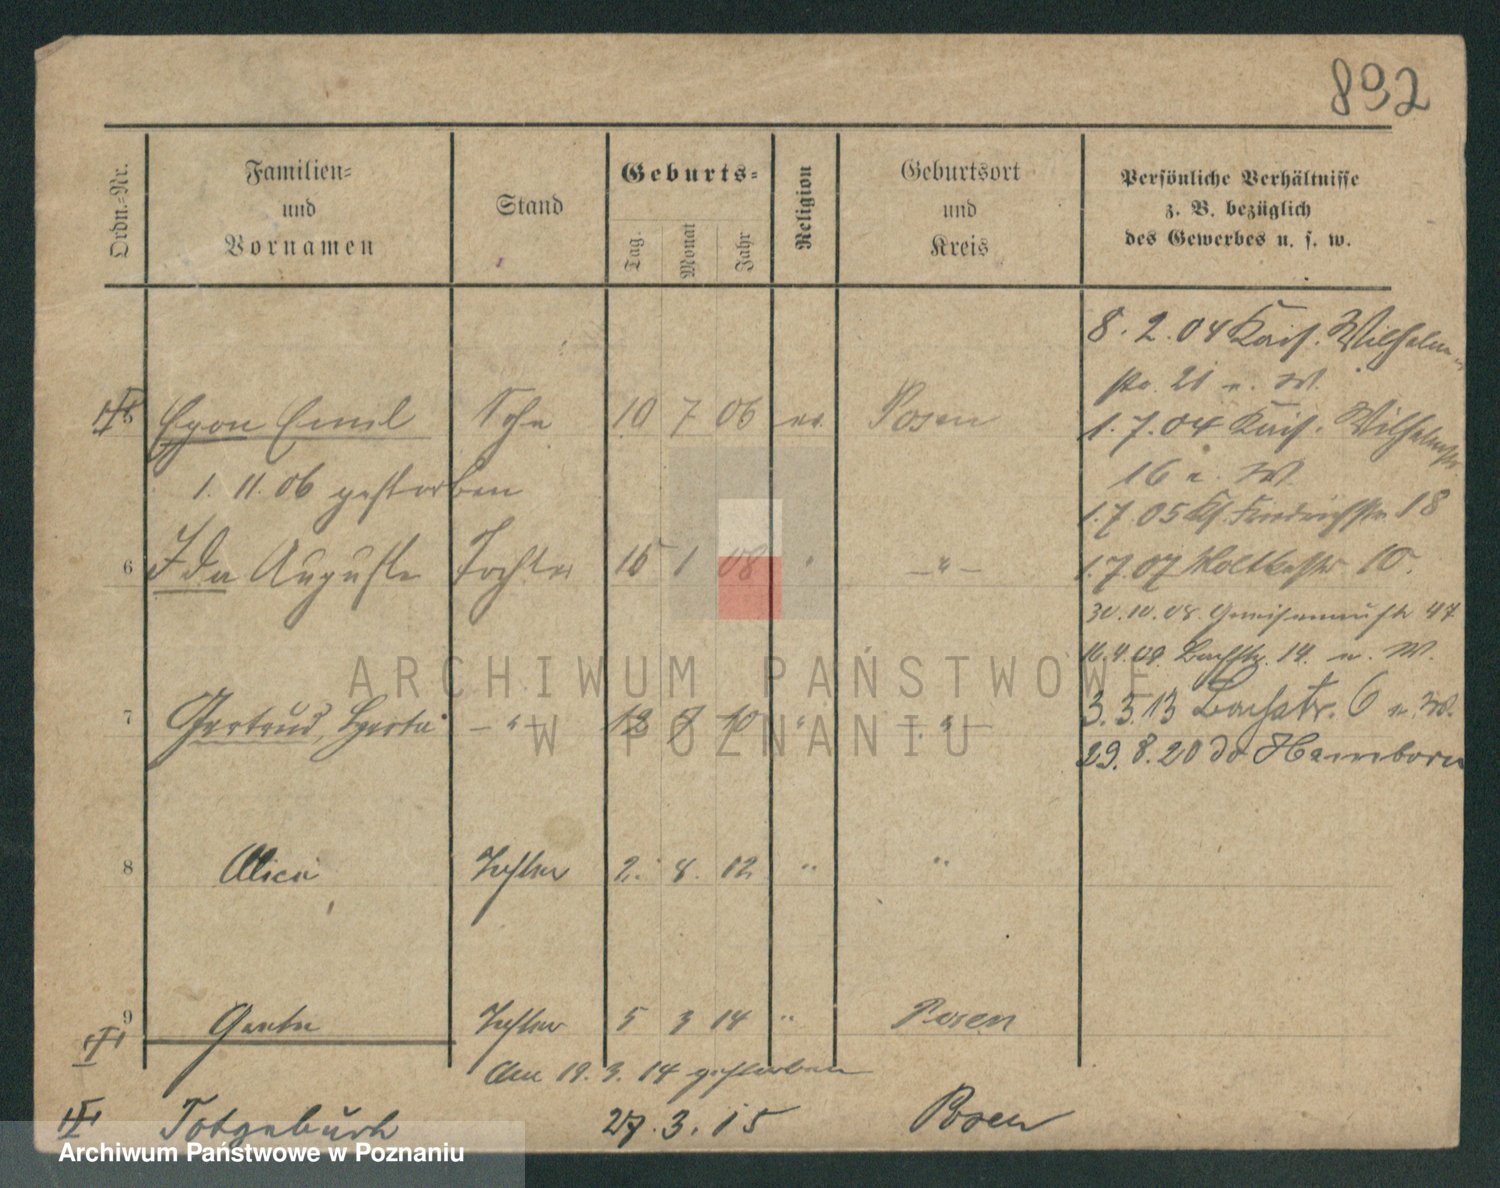 892
Ordn.-Nr.
Familien-
und
Vornamen
Stand
Geburts-
Tag.
Monat
Jahr
Religion
Geburtsort
und
Kreis
Persönliche Verhältnisse
z. B. bezüglich
des Gewerbes u. s. w.
8. 2. 04 Kais. Wilhelm
str. 21 u. W.
5 Egon Emil Sohn 10 7 06 ev. Posen
1. 7. 04 Kais. Wilhelmstr
16 u. W.
1. 11. 06 gestorben
1. 7. 05 Kl. Friedrichstr. 18
6 Ida Auguste Tochter 15 1 08 " — " —
1. 7. 07 Moltkestr 10.
30. 10. 08. Gneisenaustr 47
16. 4. 09 Bachstr. 14. u. W.
3. 3. 13 Bachstr. 6 u. W.
7 Gertrud, Herta — " — 12 10 " — " —
29. 8. 20 do Hamborn
8 Alice Tochter 2. 8. 12 " "
9 Tochter 5 3 14 " Posen
Am 19. 3. 14 gestorben
Totgeburt 27. 3. 15 Posen
ARCHIWUM PAŃSTWOWE
W POZNANIU
Archiwum Państwowe w Poznaniu